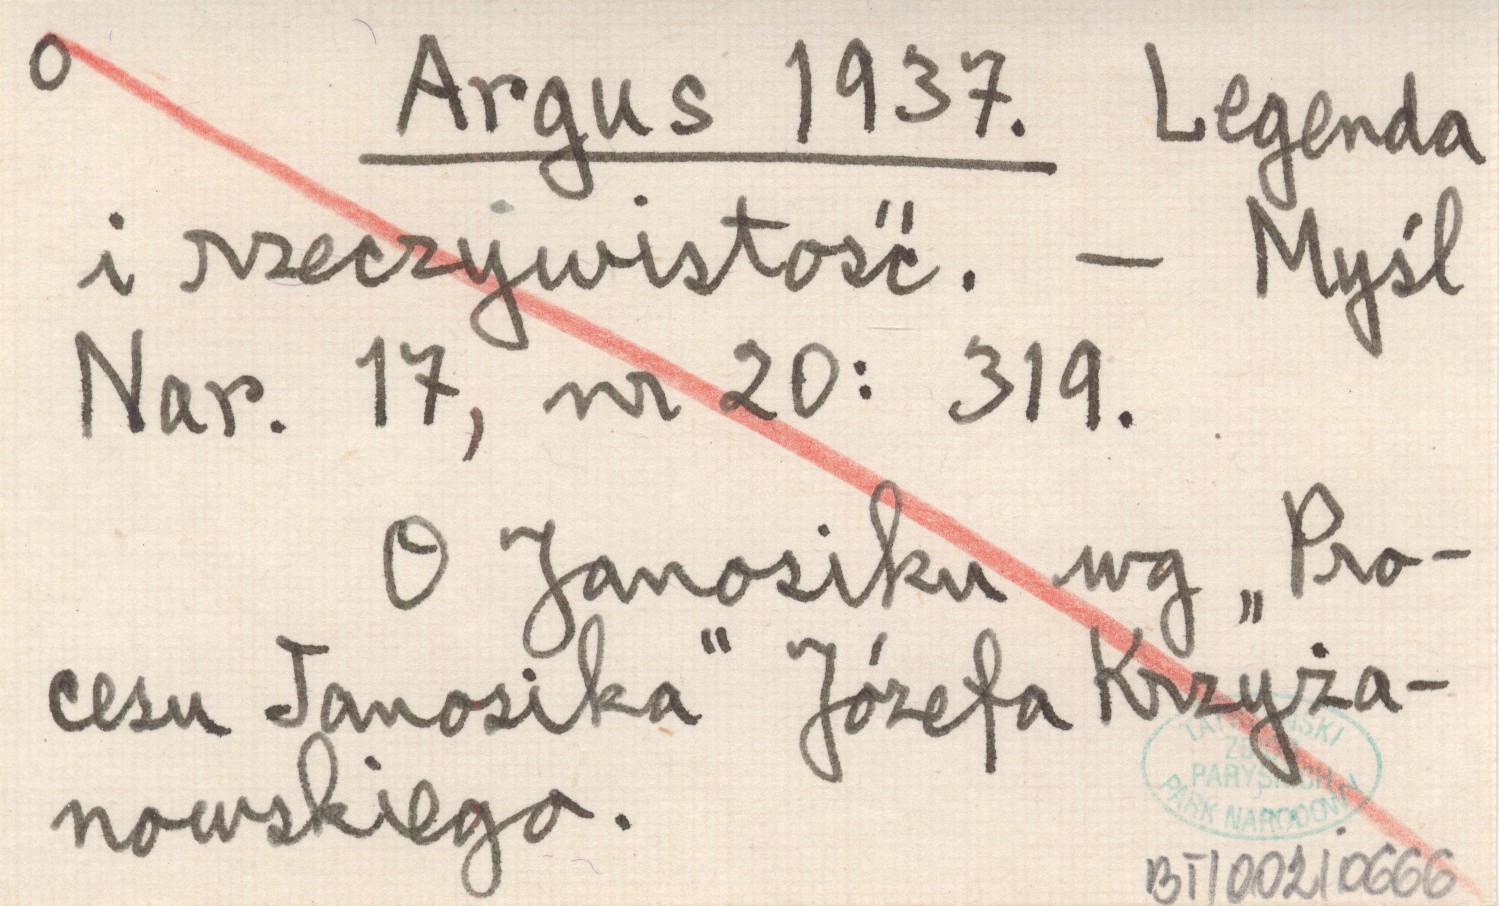 o Argus 1937. Legenda
i rzeczywistość. — Myśl
Nar. 17, nr 20: 319.
O Janosiku wg „Pro-
cesu Janosika" Józefa Krzyża-
nowskiego.
TATRZAŃSKI
PARYSKICH
PARK NARODOWY
BT/002/0666